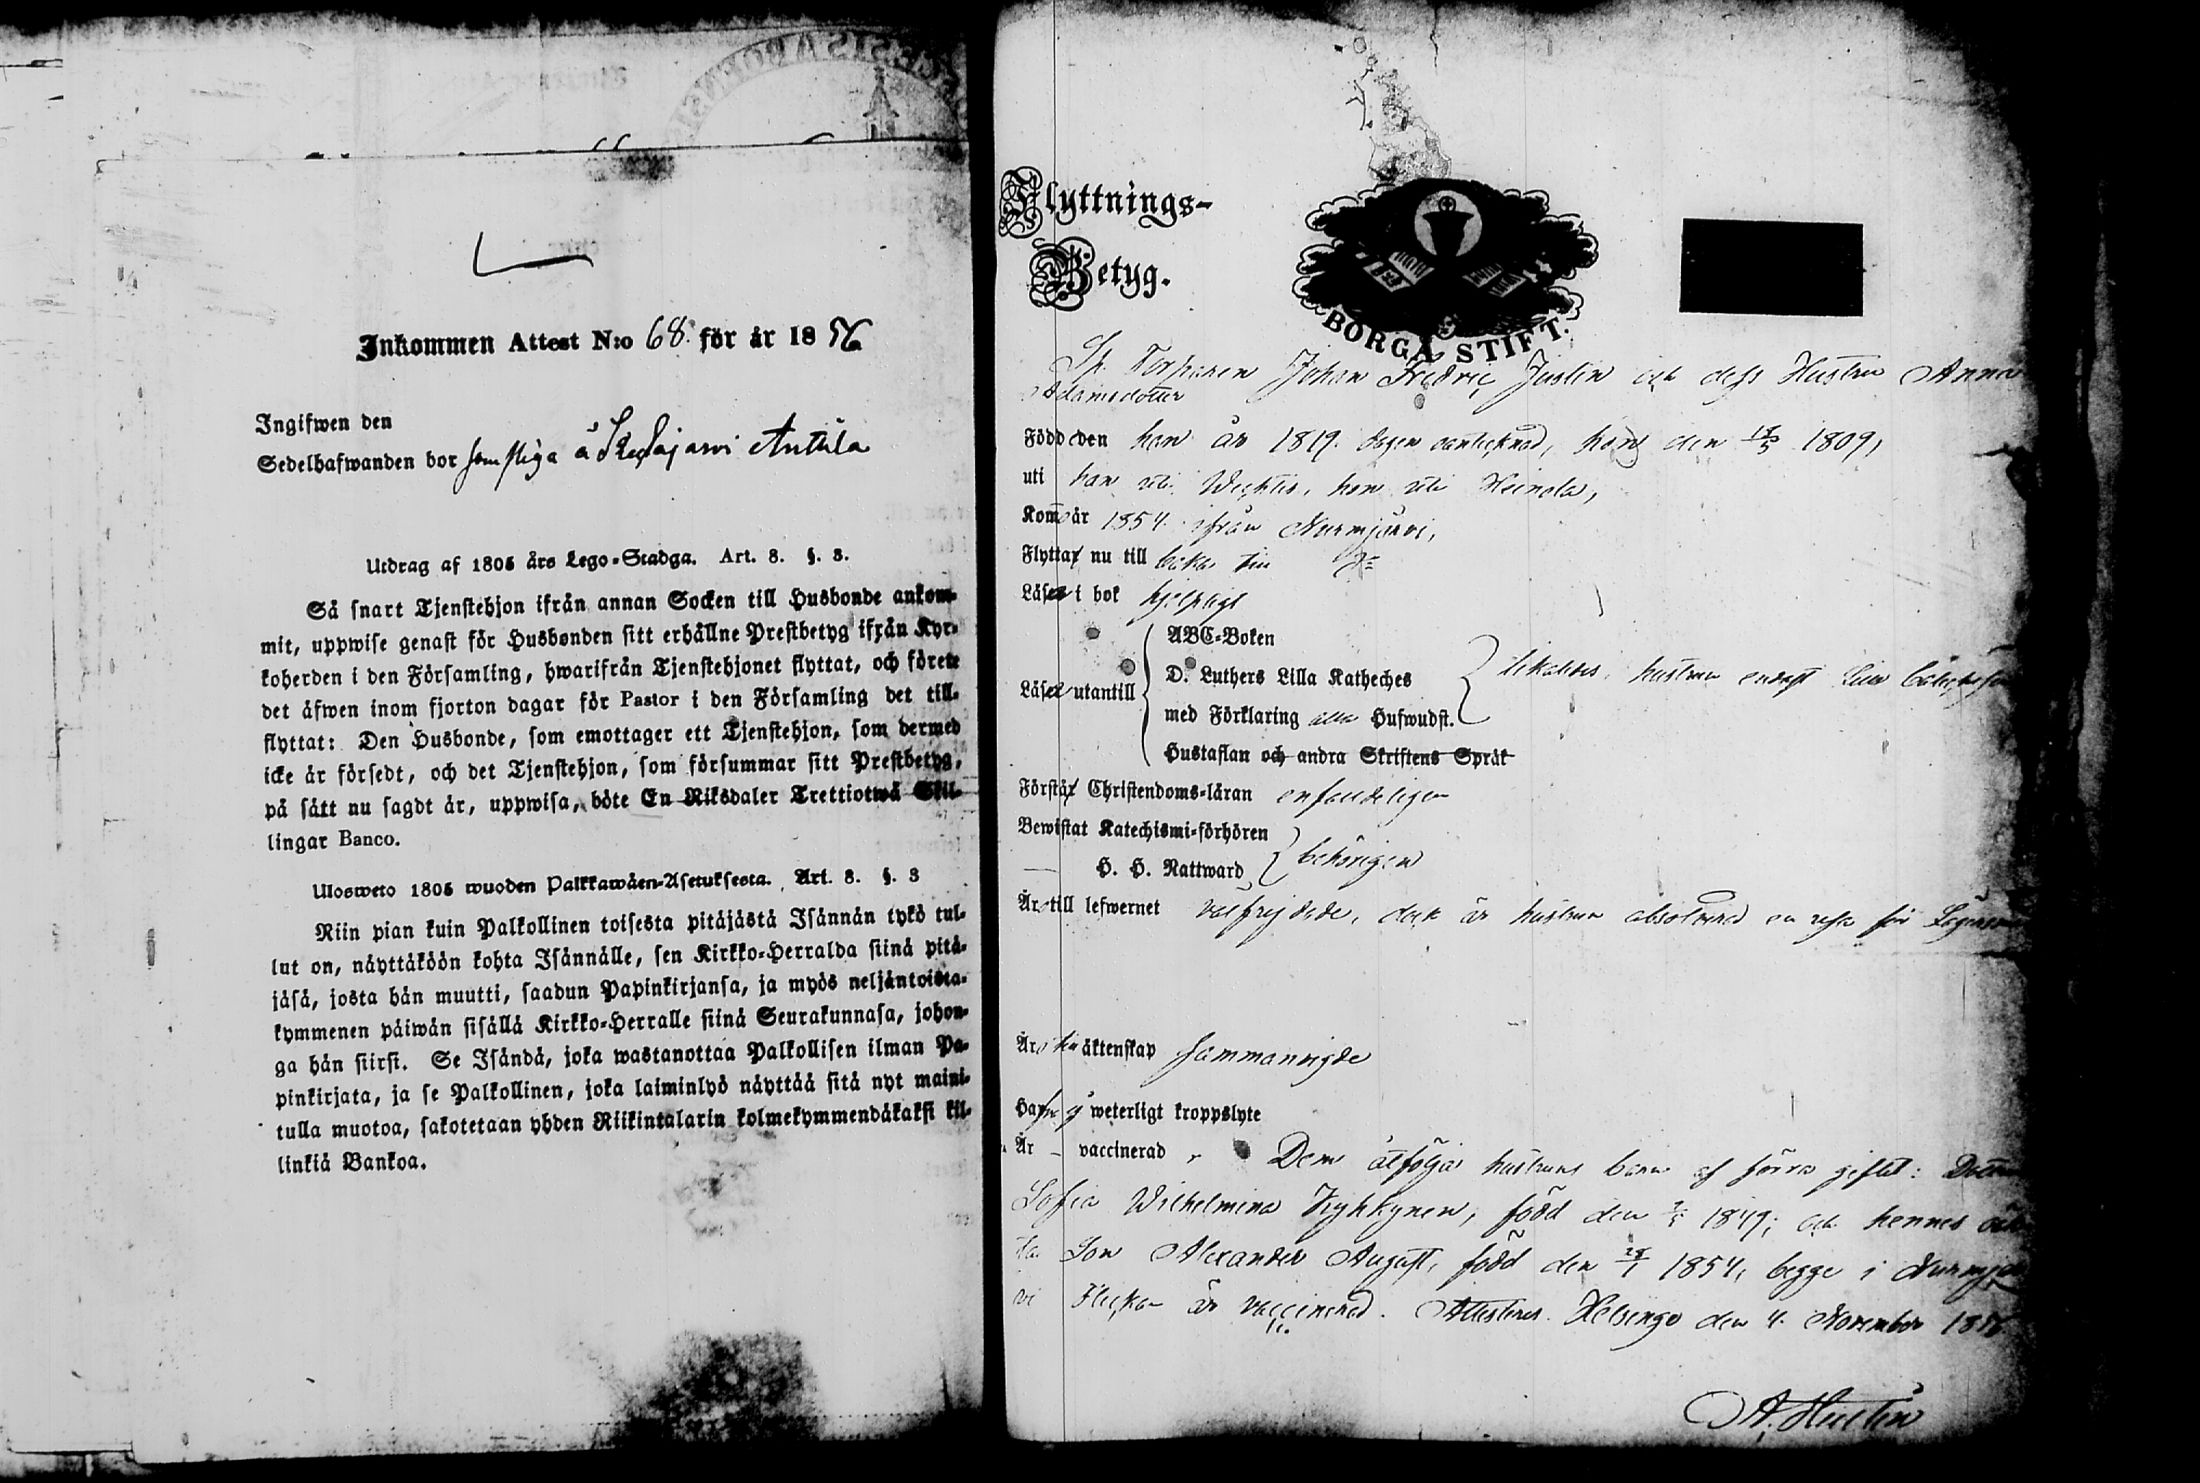 Inkommen Attest N:o 68. för år 1856
Ingifwen den
Sedelhafwanden bor samtliga å Anttila
Utdrag af 1805 års Lego-Stadga. Art. 8. §. 3.
Så snart Tjenstehjon ifrån annan Socken till Husbonde ankom-
mit, uppwise genast för Husbonden sitt erhållne Prestbetyg ifrån Kyr-
koherden i den Församling, hwarifrån Tjenstehjonet flyttat, och förete
det äfwen inom fjorton dagar för Pastor i den Församling det till-
flyttat: Den Husbonde, som emottager ett Tjenstehjon, som dermed
icke är försedt, och det Tjenstehjon, som försummar sitt Prestbetyg,
på sätt nu sagdt är, uppwisa, böte En Riksdaler Trettiotwå Skil-
lingar Banco.
Ulosweto 1805 wuoden Palkkawäen-Asetuksesta. Art. 8. §. 3
Niin pian kuin Palkollinen toisesta pitäjästä Isännän tykö tul-
lut on, näyttäköön kohta Isännälle, sen Kirkko-Herralda siinä pitä-
jäsä, josta hän muutti, saadun Papinkirjansa, ja myös neljäntoista-
kymmenen päiwän sisällä Kirkko-Herralle siinä Seurakunnasa, johon-
ga hän siirsi. Se Isändä, joka wastanottaa Palkollisen ilman Pa-
pinkirjata, ja se Palkollinen, joka laiminlyö näyttää sitä nyt maini-
tulla muotoa, sakotetaan yhden Riikintalarin kolmekymmendäkaksi kil-
linkiä Bankoa.
Flyttnings-
Betyg.
BORGÅ STIFT.
Torparen Johan Fredric Justin och dess Hustru Anna
Adamsdotter
Född den han år 1819. dagen oantecknad, hon den 1809,
uti han uti Wichtis, hon uti Heinola,
Kom år 1854. ifrån Nurmijärvi,
Flyttar nu till
Läser i bok hjelpligt
ABC-Boken
D. Luthers Lilla Katheches
Läser utantill likaledes, hustrun endast
med Förklaring alla Hufwudst.
Hustaflan och andra Skriftens Språk
Förstår Christendoms-läran enfaldeligen
Bewistat Katechismi-förhören
H. H. Nattward behörigen
Äro till lefwernet välfrejdade, dock är hustrun absolverad en resa för
Äro äktenskap sammanvigde
weterligt kroppslyte
Är vaccinerad Dem åtfölja hustruns barn af förra giftet: Dottren
Sofia Wilhelmina Kyhkynen, född den 1849; och hennes
Son Alexander August, född den 28/1 1854, begge i Nurmijär
vi Flickan är vaccinerad. Attesteras. Helsinge den 4. November 1856